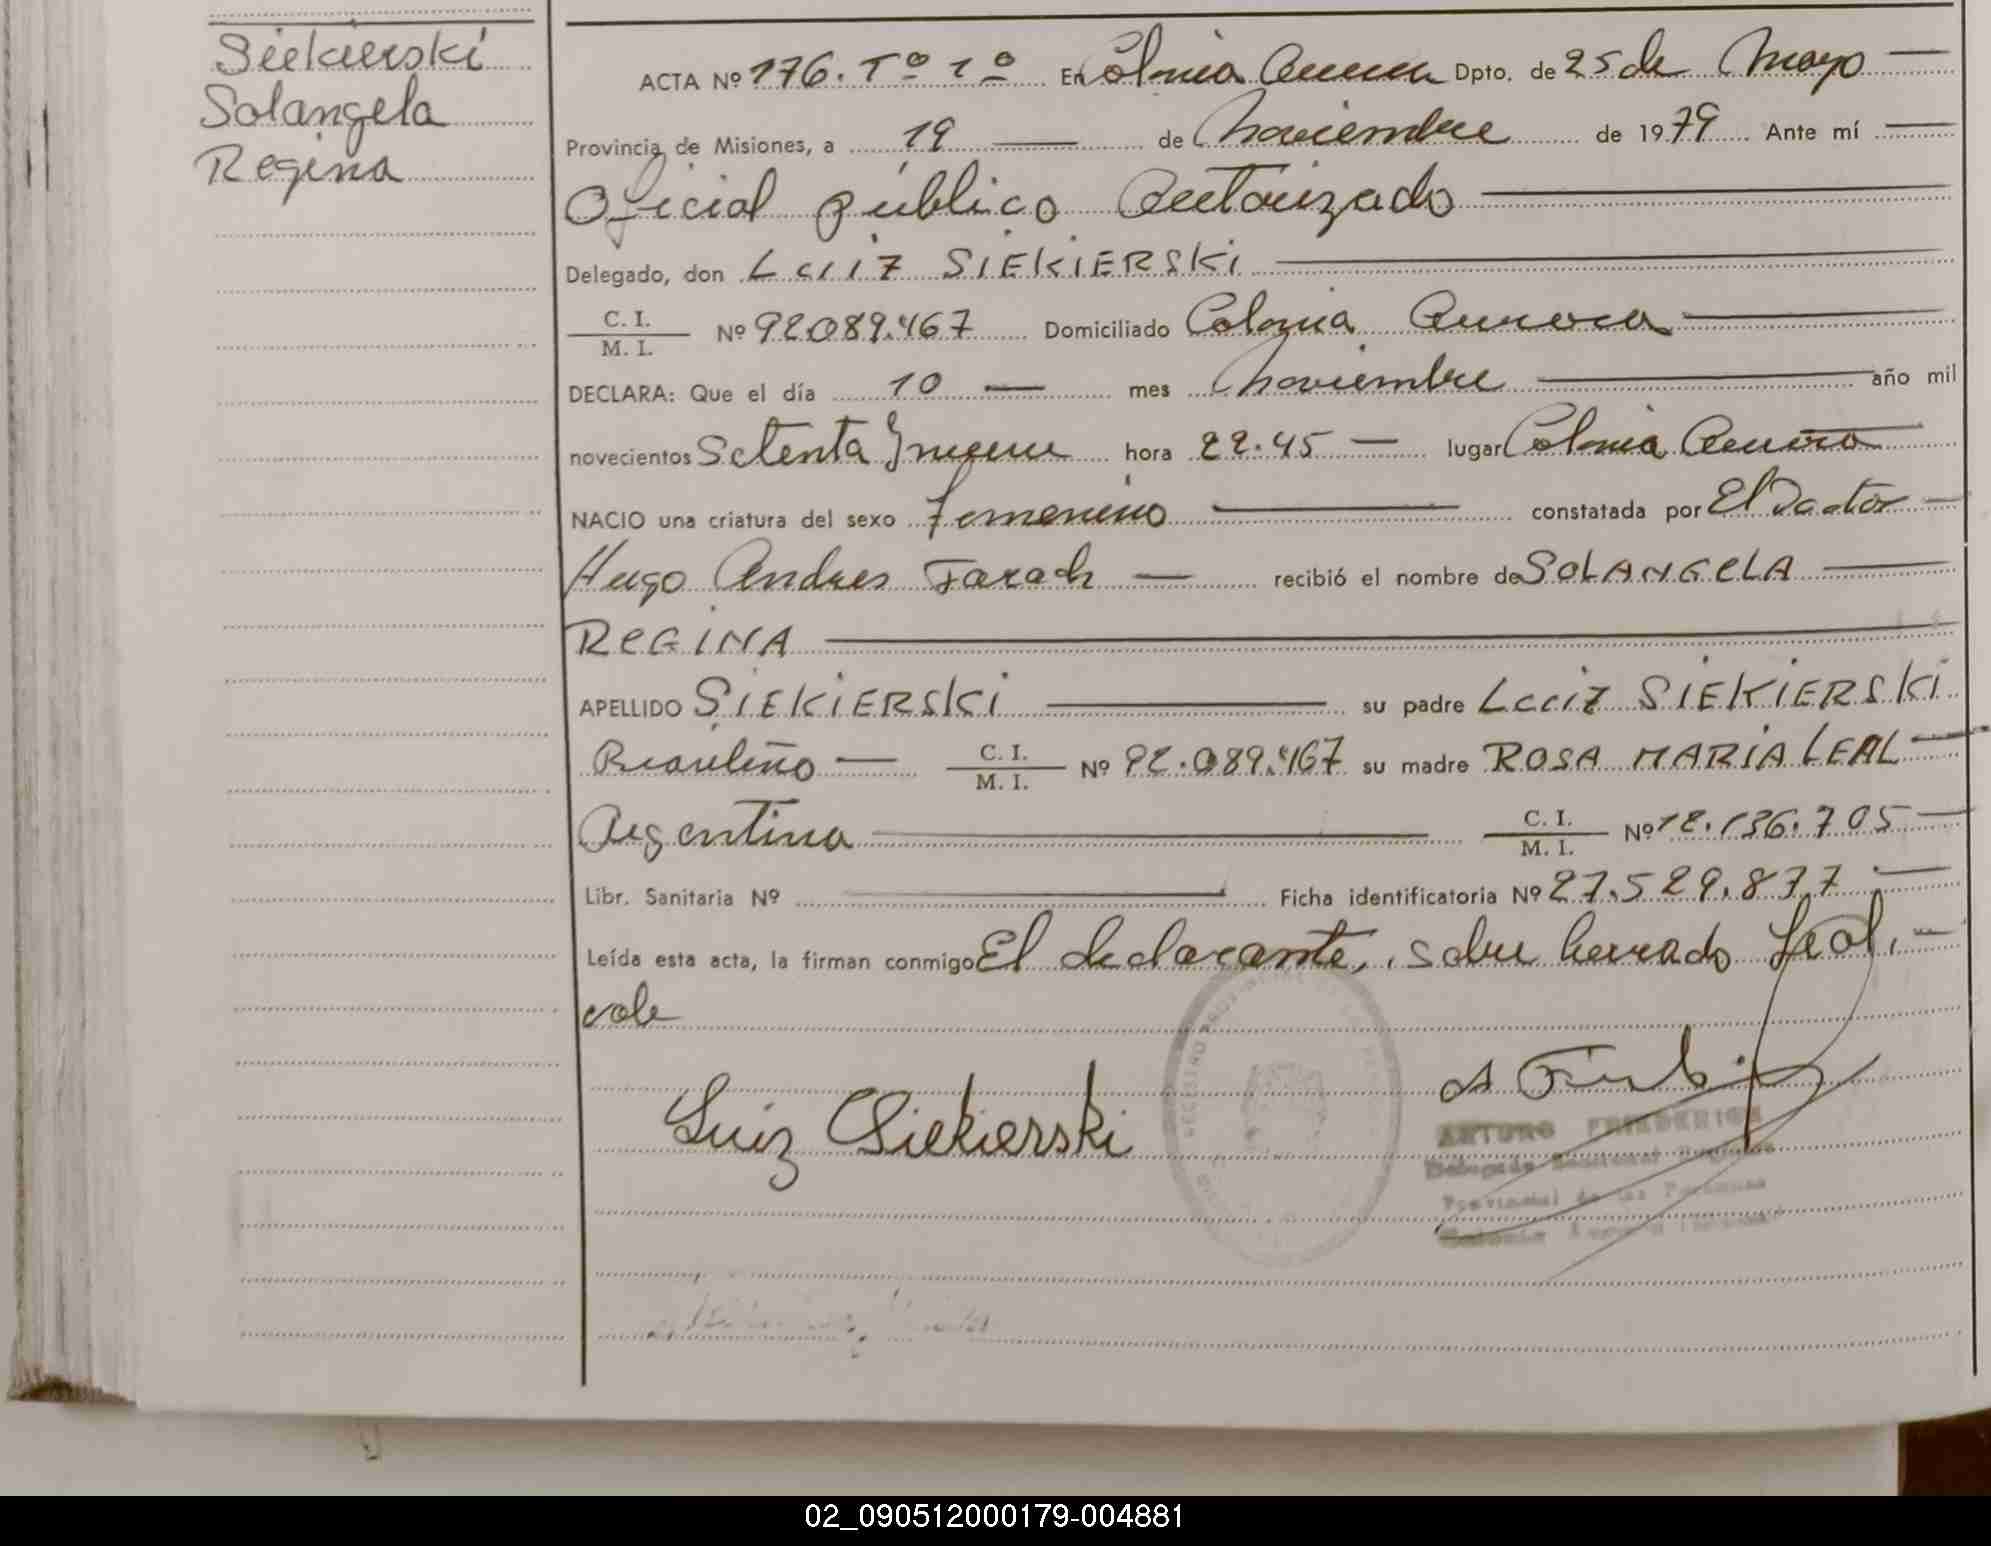 Siekierski
Solangela
Regina
ACTA Nº 176. Tº 1º En Colonia Aurora Dpto. de 25 de Mayo
Provincia de Misiones, a 19 de Noviembre de 1979 Ante mí
Oficial público Autorizado
Delegado, don Luiz SIEKIERSKI
C. I.
M. I. Nº 92.089.467 Domiciliado Colonia Aurora
DECLARA: Que el día 10 mes Noviembre año mil
novecientos Setenta y nueve hora 22.45 lugar Colonia Aurora
NACIO una criatura del sexo Femenino constatada por El Doctor
Hugo Andres Farach recibió el nombre de SOLANGELA
REGINA
APELLIDO SIEKIERSKI su padre Luiz SIEKIERSKI
Brasileño C. I.
M. I. Nº 92.089.467 su madre ROSA MARIA LEAL
Argentina C. I.
M. I. Nº 12.136.705
Libr. Sanitaria Nº Ficha identificatoria Nº 27.529.877
Leída esta acta, la firman conmigo El declarante, sobre borrado Leal,
vale
Luiz Siekierski
ARTURO FRIEDERICH
Delegado Seccional Registro
Provincial de las Personas
Colonia Aurora
02_090512000179-004881